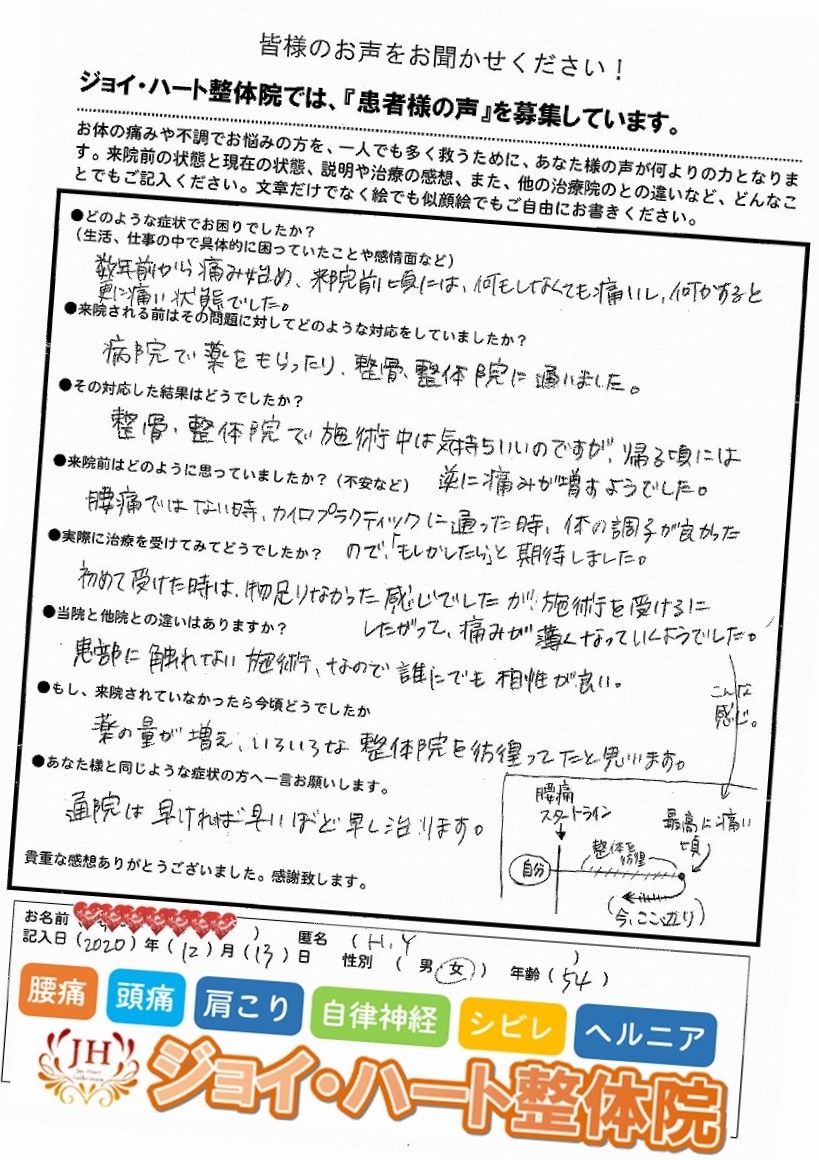 皆様のお声をお聞かせください！
ジョイ・ハート整体院では、『患者様の声』を募集しています。
お体の痛みや不調でお悩みの方を、一人でも多く救うために、あなた様の声が何よりの力となりま
す。来院前の状態と現在の状態、説明や治療の感想、また、他の治療院のとの違いなど、どんなこ
とでもご記入ください。文章だけでなく絵でも似顔絵でもご自由にお書きください。
●どのような症状でお困りでしたか？
（生活、仕事の中で具体的に困っていたことや感情面など）
数年前から痛み始め、来院前頃には、何もしなくても痛いし、何かすると
更に痛い状態でした。
●来院される前はその問題に対してどのような対応をしていましたか？
病院で薬をもらったり、整骨、整体院に通いました。
●その対応した結果はどうでしたか？
整骨、整体院で施術中は気持ちいいのですが、帰る頃には
逆に痛みが増すようでした。
●来院前はどのように思っていましたか？（不安など）
腰痛ではない時、カイロプラクティックに通った時、体の調子が良かった
ので、「もしかしたら」と期待しました。
●実際に治療を受けてみてどうでしたか？
初めて受けた時は、物足りなかった感じでしたが、施術を受けるに
したがって、痛みが薄くなっていくようでした。
●当院と他院との違いはありますか？
患部に触れない施術、なので誰にでも相性が良い。
こんな
感じ。
●もし、来院されていなかったら今頃どうでしたか
薬の量が増え、いろいろな整体院を彷徨ってたと思います。
●あなた様と同じような症状の方へ一言お願いします。
通院は早ければ早いほど早し治ります。
腰痛
スタートライン
最高に痛い
頃
整体を
彷徨
自分
（今、ここ辺り）
貴重な感想ありがとうございました。感謝致します。
お名前（ ） 匿名 （H.Y ）
記入日（2020）年（12）月（13）日 性別 （ 男 女 ） 年齢（54）
腰痛 頭痛 肩こり 自律神経 シビレ ヘルニア
JH
ジョイ・ハート整体院